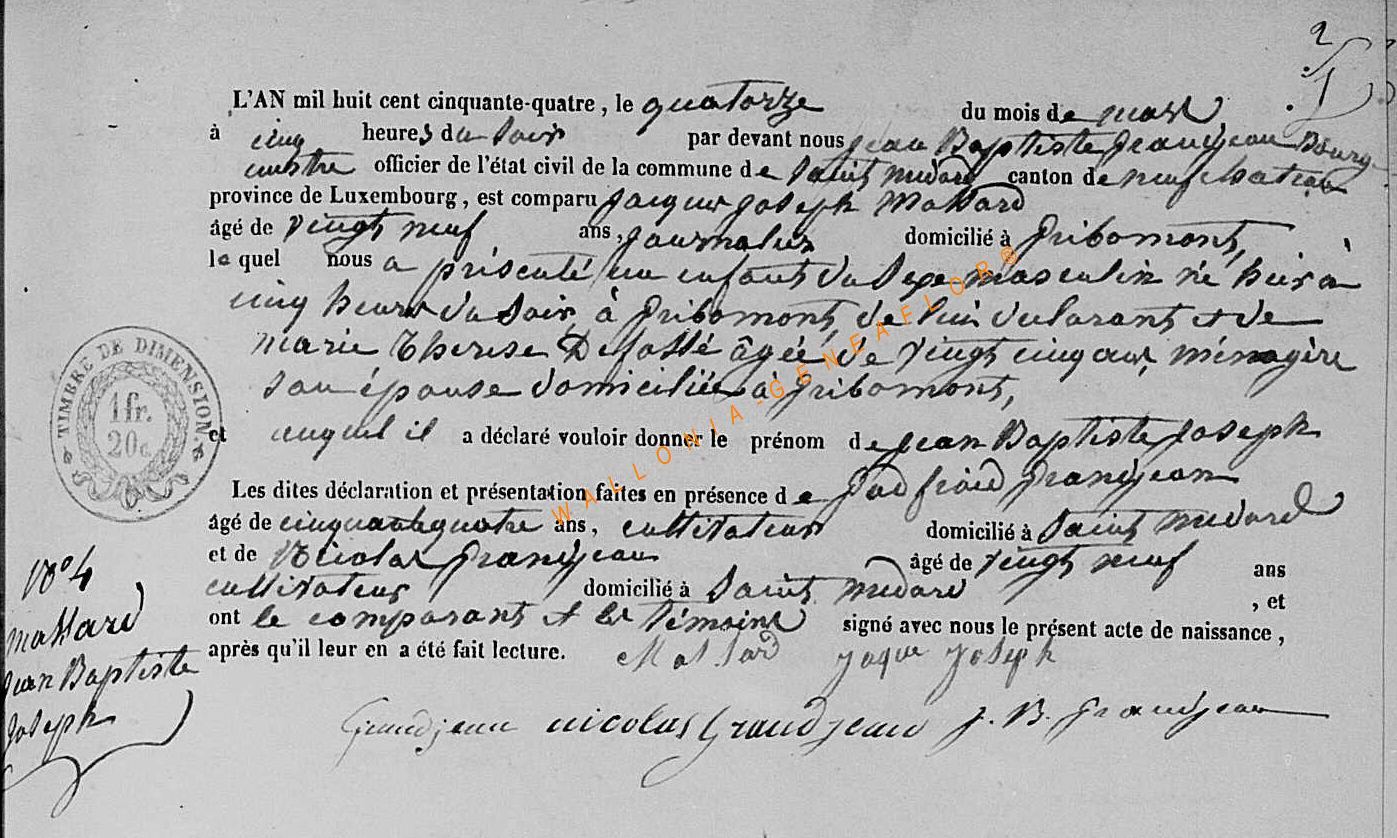 2
L'AN mil huit cent cinquante-quatre, le quatorze du mois de mars,
à cinq heures du soir par devant nous jean Baptiste Grandjean Bourg
mestre officier de l'état civil de la commune de Saint médard canton de neufchateau
province de Luxembourg, est comparu jacques joseph Massard
âgé de vingt neuf ans, journalier domicilié à gribomont,
lequel nous a présenté un enfant du sexe masculin né hier à
cinq heures du soir, à gribomont, de lui déclarant et de
marie Therese Defossé âgée de vingt cinq ans, ménagère
son épouse domiciliée à gribomont,
et auquel il a déclaré vouloir donner le prénom de jean Baptiste joseph
Les dites déclaration et présentation faites en présence de Godfroid grandjean
âgé de cinquante quatre ans, cultivateur domicilié à Saint médard
et de Nicolas grandjean âgé de vingt neuf ans
cultivateur domicilié à Saint médard, et
ont le comparant et les témoins signé avec nous le présent acte de naissance,
après qu'il leur en a été fait lecture. Massard jaque joseph
Grandjean nicolas Grandjean J. B. grandjean
TIMBRE DE DIMENSION.
1 fr.
20 c.
N° 4
Massard
jean Baptiste
joseph
WALLONIA-GENEAFLOR®